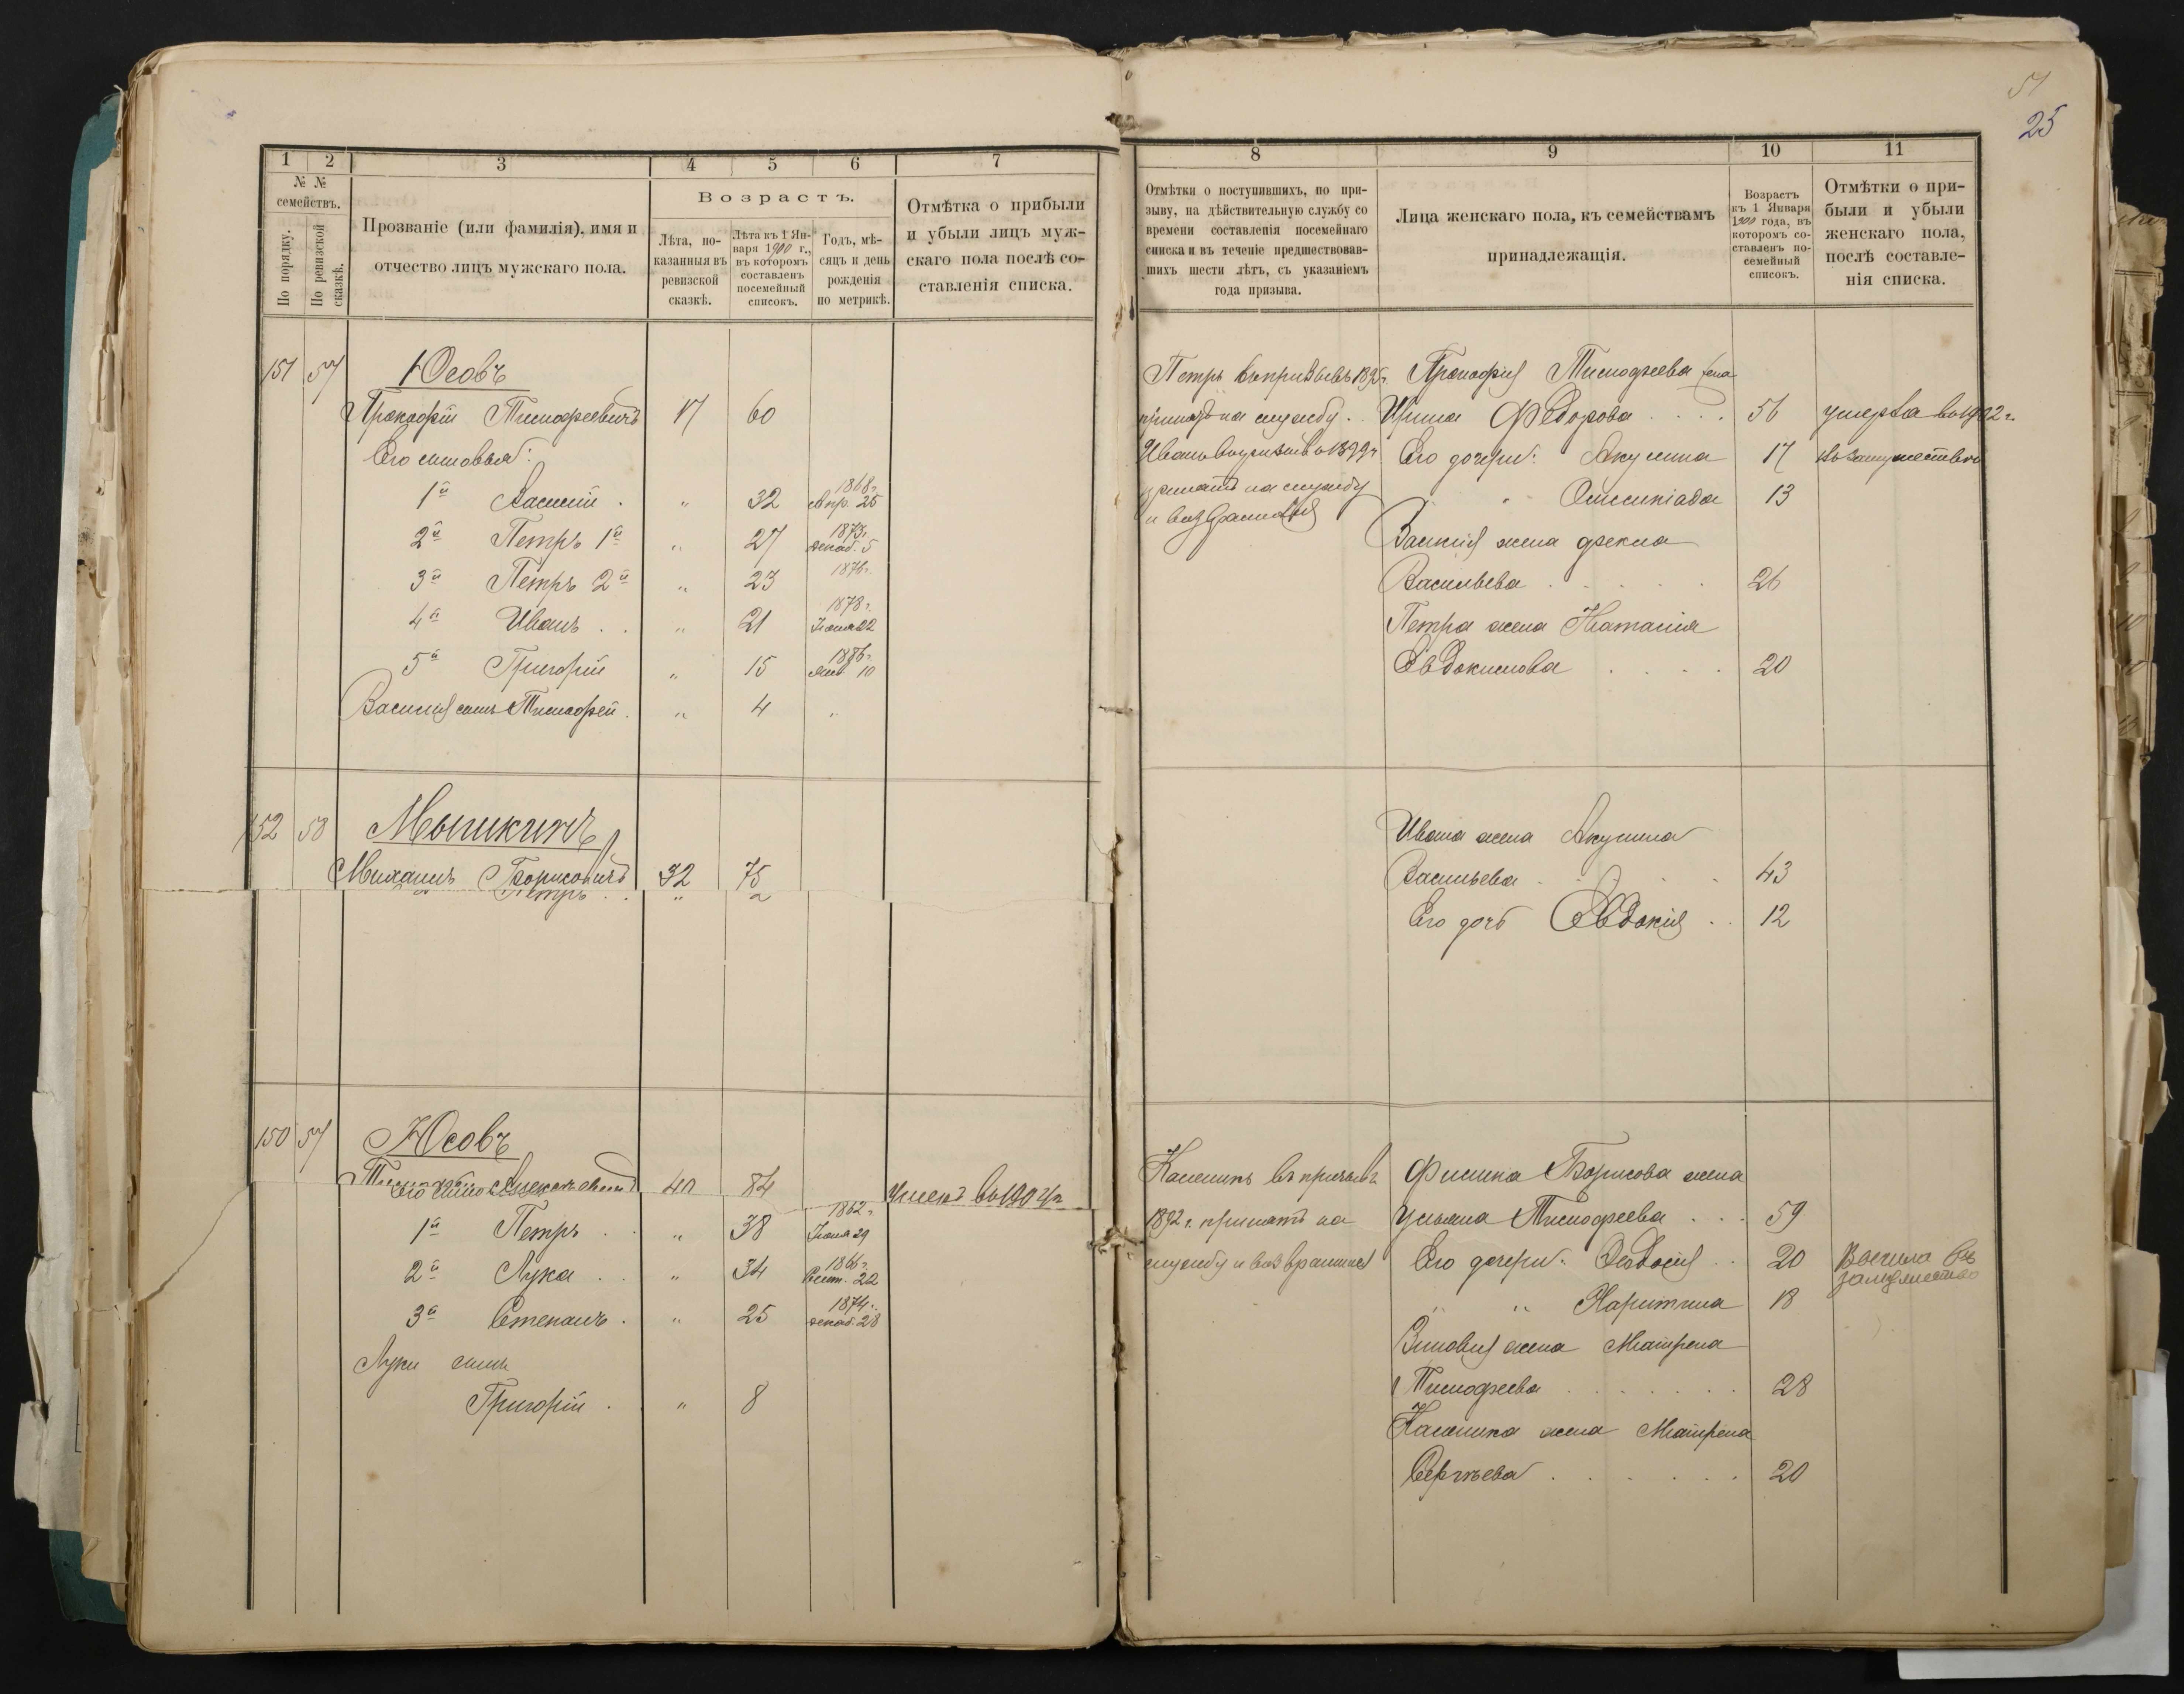 51
25
1 2 3 4 5 6 7
№ №
семействъ.
По порядку.
По ревизской
сказкѣ.
Прозваніе (или фамилія), имя и
отчество лицъ мужскаго пола.
Возрастъ.
Лѣта, по-
казанныя въ
ревизской
сказкѣ.
Лѣта къ 1 Ян-
варя 1900 г.,
въ которомъ
составленъ
посемейный
списокъ.
Годъ, мѣ-
сяцъ и день
рожденія
по метрикѣ.
Отмѣтка о прибыли
и убыли лицъ муж-
скаго пола послѣ со-
ставленія списка.
151 57 Юсовъ
Прокофій Тимофеевичъ 17 60
Его сыновья:
1й Василій . " 32 1868г. Апр. 25
2й Петръ 1й " 27 1873г. декаб. 5
3й Петръ 2й " 23 1876г.
4й Иванъ . . " 21 1878г. Іюня 22
5й Григорій " 15 1886г. 10
Василія сынъ Тимофей . " 4 "
152 58 Мышкинъ
Михаилъ Борисовичъ 32 75
Петръ . . "
150 57 Юсовъ
40 84 Умеръ въ 1904г.
Его
1й Петръ . . " 38 1862г. Іюня 29
2й Лука . . " 34 1866г. Сент. 22
3й Степанъ . " 25 1874г. декаб. 28
Луки сынъ
Григорій . " 8
8 9 10 11
Отмѣтки о поступившихъ, по при-
зыву, на дѣйствительную службу со
времени составленія посемейнаго
списка и въ теченіе предшествовав-
шихъ шести лѣтъ, съ указаніемъ
года призыва.
Лица женскаго пола, къ семействамъ
принадлежащія.
Возрастъ
къ 1 Января
1900 года, въ
которомъ со-
ставленъ по-
семейный
списокъ.
Отмѣтки о при-
были и убыли
женскаго пола,
послѣ составле-
нія списка.
Петръ въ призывъ 1895г. Прокофія Тимофеева жена
принятъ на службу . Ирина Федорова . . . 56 умерла въ 1902 г.
Иванъ въ призывъ 1899г Его дочери: Акулина 17 въ замужествѣ
принятъ на службу " Олимпіада 13
и возвратился
Василія жена Фекла
Васильева . . . . . 26
Петра жена Наталія
Евдокимова . . . . 20
Ивана жена Акулина
Васильева . . . . 43
Его дочь Евдокія . . 12
Калиникъ въ призывъ Филипа Борисова жена
1892 г. принятъ на Ульяна Тимофеева . . . 59
службу и возвратился Его дочери: Феодосія . . 20 Вышла въ
замужество
" " Харитина 18
Зиновія жена Матрена
Тимофеева . . . . . . . 28
Калиника жена Матрена
Сергѣева . . . . . . 20